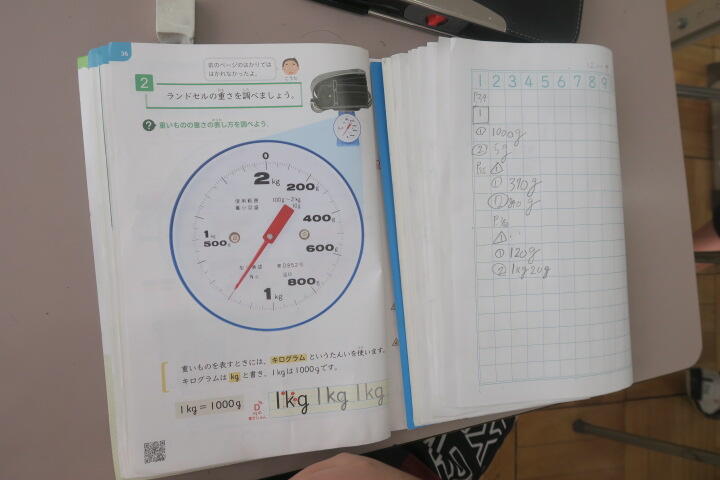 36
前のページのはかりでは
はかれなかったよ。
2
ランドセルの重さを調べましょう。
? 重いものの重さの表し方を調べよう。
0
2kg
200g
使用範囲 100g~2kg
最小目盛 10g
400g
1kg
500g
600g
800g
1kg
重いものを表すときには、キログラム というたんいを使います。
キログラムは kg と書き、1kgは1000gです。
1kg=1000g
1kg 1kg 1kg
1 2 3 4 5 6 7 8 9
1
① 1000g
② 5g
① 390g
P36
① 120g
② 1kg 20g